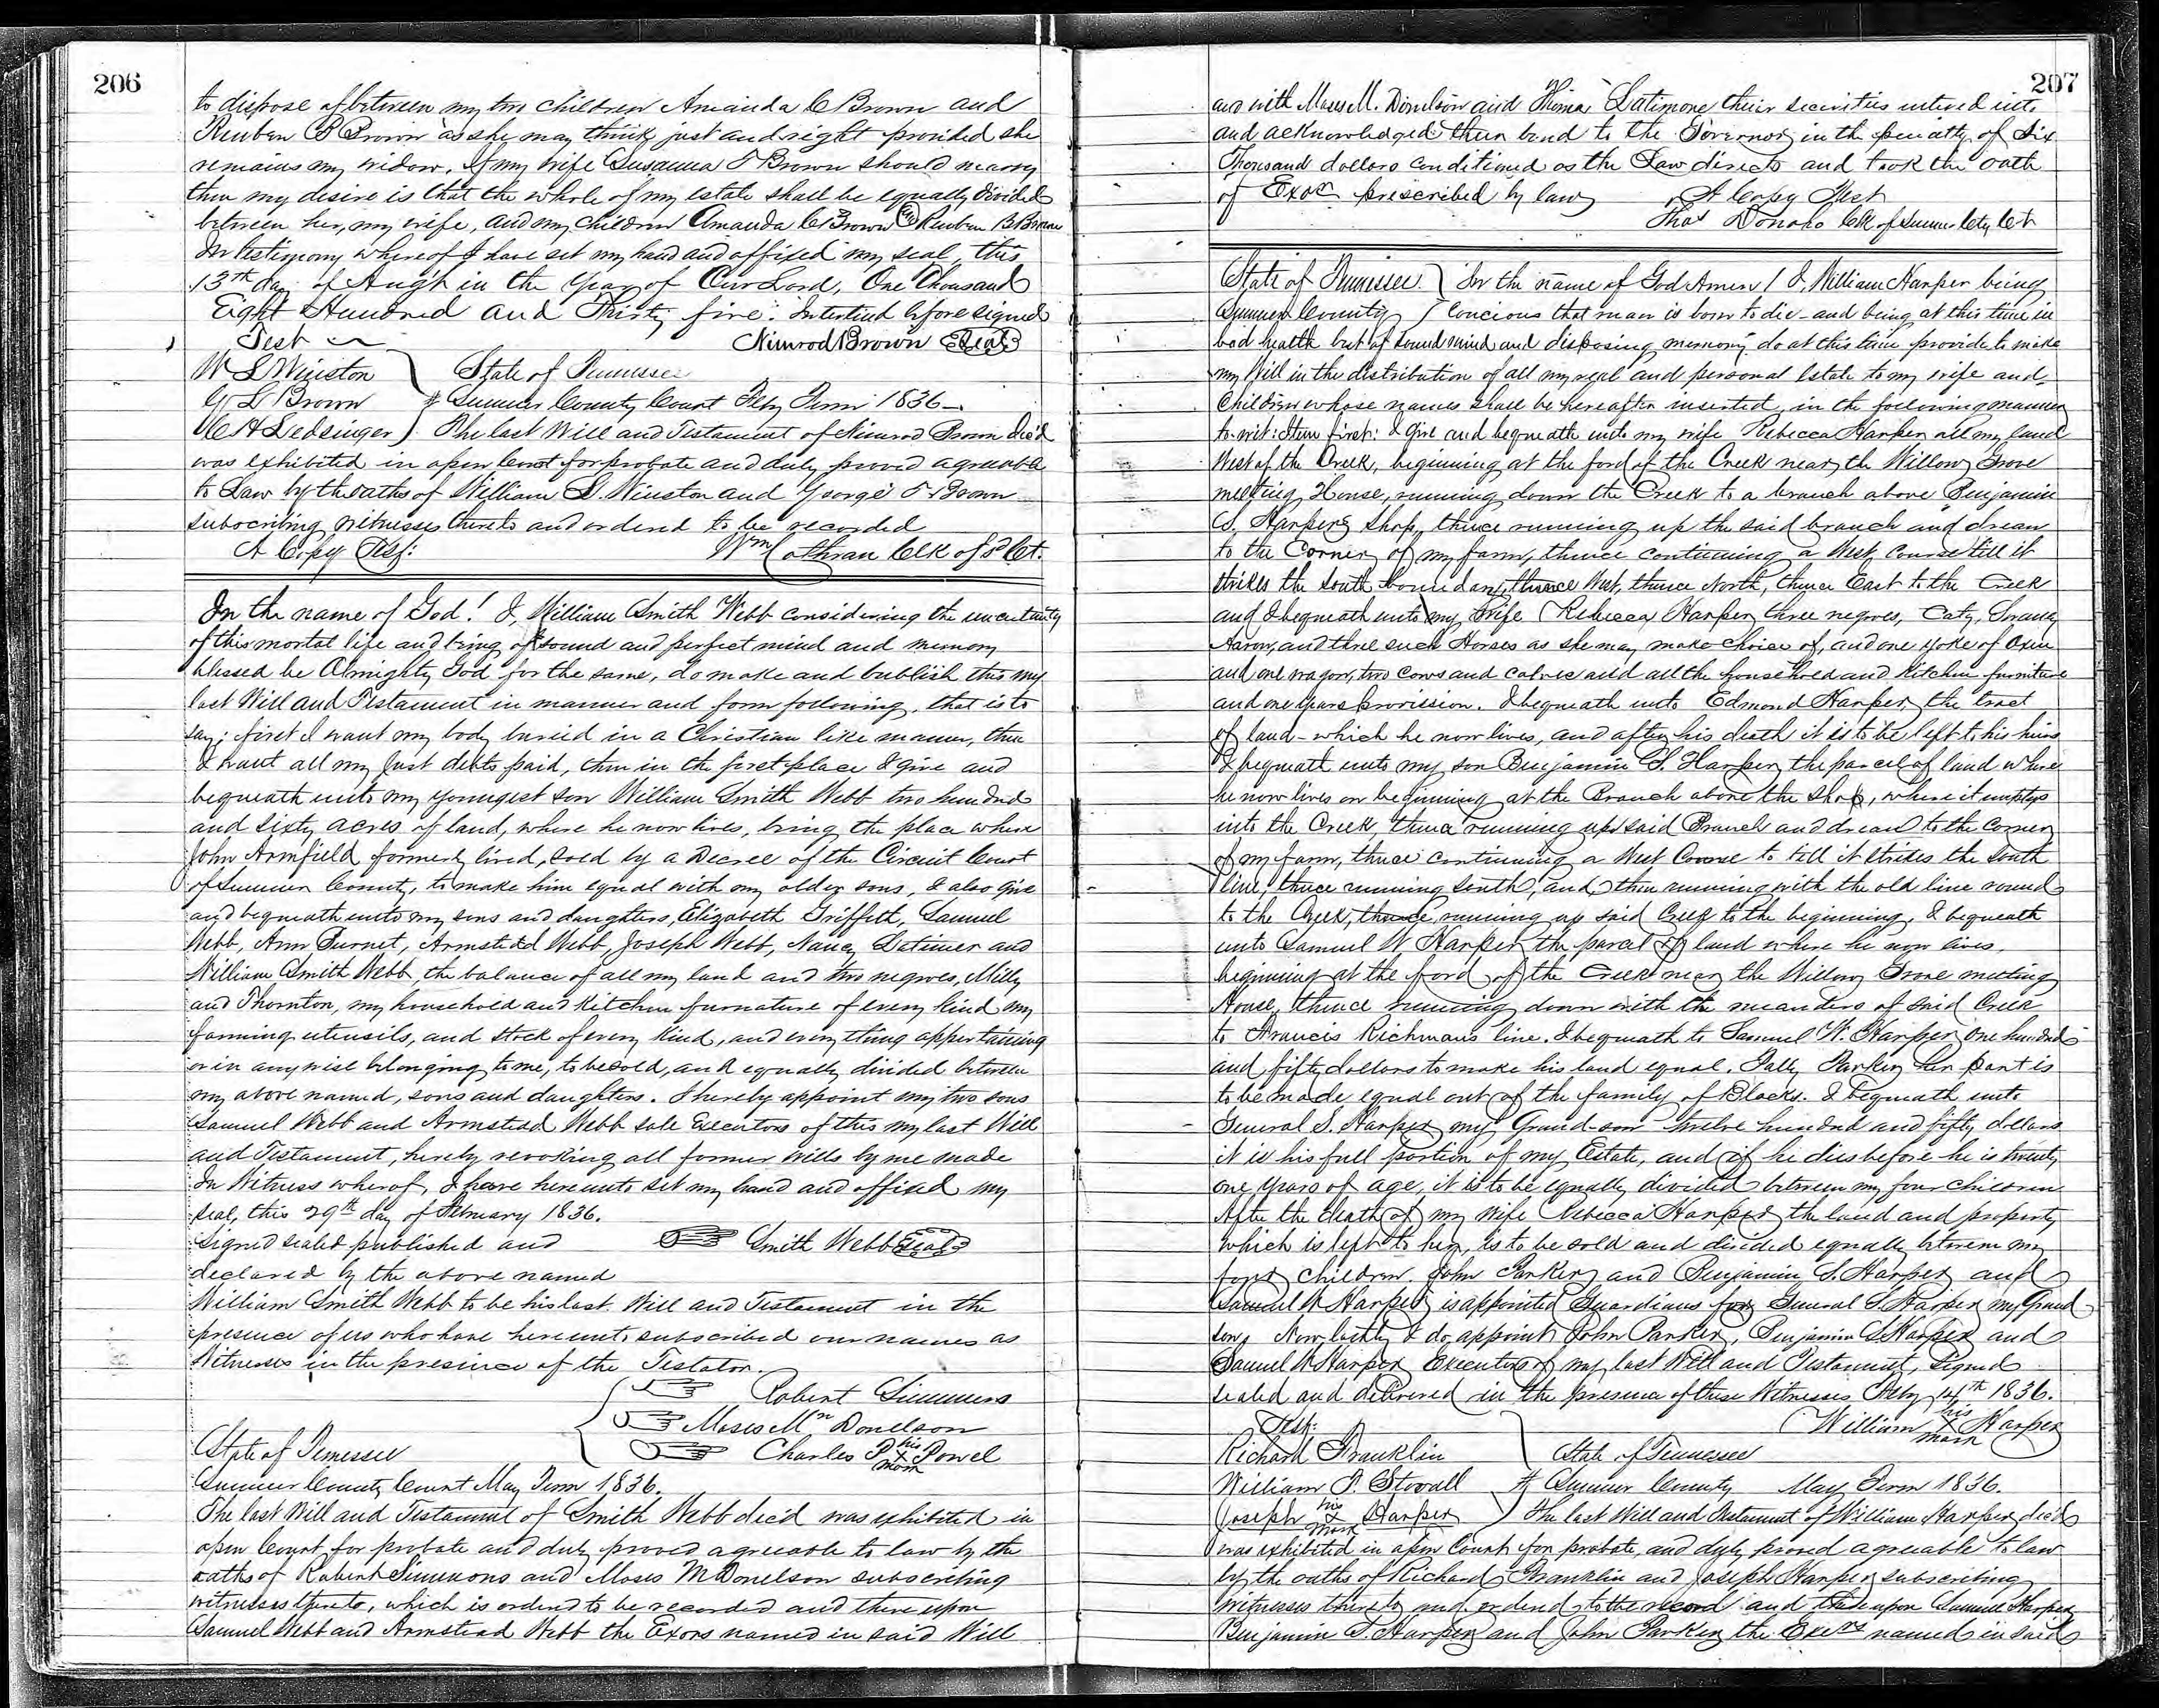 206
to dispose of between my two children Amanda C Brown and
Reuben B Brown as she may think just and right provided she
remains my widow. If my wife Susanna T Brown should marry
then my desire is that the whole of my estate shall be equally divided
between her, my wife, and my children Amanda C Brown & Reuben B Brown
In testimony whereof I have set my hand and affixed my seal, this
13th day of Augst in the Year of Our Lord, One Thousand
Eight Hundred and Thirty five. Interlined before signed
Test Nimrod Brown Seal
W S Winston State of Tennessee
G T Brown Sumner County Court Feby Term 1836
A Ledsinger The last Will and Testament of Nimrod Brown dec'd
was exhibited in open Court for probate and duly proved agreeable
to Law by the oaths of William S. Winston and George T Brown
subscribing witnesses thereto and ordered to be recorded
A Copy Test: Wm Cothran Clk of S Ct.
In the name of God! I, William Smith Webb considering the uncertainty
of this mortal life and being of sound and perfect mind and memory
blessed be Almighty God for the same, do make and publish this my
last Will and Testament in manner and form following, that is to
say; first I want my body buried in a Christian like manner, then
I want all my just debts paid, then in the first place I give and
bequeath unto my youngest son William Smith Webb two hundred
and sixty acres of land, where he now lives, being the place where
John Armfield formerly lived, sold by a Decree of the Circuit Court
of Sumner County, to make him equal with my older sons, I also give
and bequeath unto my sons and daughters, Elizabeth Griffett, Samuel
Webb, Ann Burnet, Armstead Webb, Joseph Webb, Nancy Latimer and
William Smith Webb, the balance of all my land and two negroes, Milly
and Thornton, my household and Kitchen furnature of every kind my
farming utensils, and stock of every kind, and every thing appertaining
or in any wise belonging to me, to be sold, and equally divided between
my above named, sons and daughters. I hereby appoint my two sons
Samuel Webb and Armstead Webb sole Executors of this my last Will
and Testament, hereby revoking all former wills by me made
In Witness wherof, I have hereunto set my hand and affixed my
seal, this 29th day of February 1836.
signed sealed published and Smith Webb Seal
declared by the above named
William Smith Webb to be his last Will and Testament in the
presence of us who have hereunto subscribed our names as
Witnesses in the presince of the Testator.
Robert Simmons
Moses Mn Donelson
State of Tennessee Charles P his x mark Powel
Sumner County Court May Term 1836.
The last Will and Testament of Smith Webb dec'd was exhibited in
open Court for probate and duly proved agreeable to law by the
oaths of Robert Simmons and Moses M Donelson subscribing
witnesses thereto, which is ordered to be recorded and there upon
Samuel Webb and Armstead Webb the Exors named in said Will
207
and with Moses M. Donelson and Thomas Latimore their securities entered into
and acknowledged their bond to the Governor in the penalty of Six
Thousand dollars conditioned as the Law directs and took the oath
of Exor prescribed by law A Copy Test
Thos Donoho Clk of Sumner Cty Ct
State of Tennessee In the name of God Amen! I, William Harper being
Sumner County Concious that man is born to die and being at this time in
bad health but of sound mind and disposing memory, do at this time provide to make
my Will in the distribution of all my real and personal Estate to my wife and
Children whose names shall be hereafter inserted, in the following manner
to wit: Item first: I give and bequeath unto my wife Rebecca Harper all my land
West of the Creek, beginning at the ford of the Creek near the Willow Grove
meeting House, running down the Creek to a branch above Benjamin
S. Harpers Shop, thence running up the said branch and drean
to the Corner of my farm, thence continuing a West course till it
strikes the South boundary, thence West, thence North, thence East to the Creek
and I bequeath unto my wife Rebecca Harper three negroes, Caty,
Aaron, and three such Horses as she may make choice of, and one yoke of Oxen
and one wagon, two cows and calves and all the household and Kitchen furniture
and one years provission. I bequeath unto Edmond Harper, the tract
of land which he now lives, and after his death it is to be left to his heirs
I bequeath unto my son Benjamin S. Harper the parcel of land where
he now lives on beginning at the Branch above the Shop, where it emptys
into the Creek, thence running up said Branch and drean to the Corner
of my farm, thence continuing a West Course to till it strikes the South
line, thence running South, and then running with the old line round
to the Creek, thence running up said Creek to the beginning. I bequeath
unto Samuel W. Harper the parcel of land where he now lives,
beginning at the ford of the Creek near the Willow Grove meeting
House, thence running down with the meanders of said Creek
to Francis Richmans line. I bequeath to Samuel W. Harper One hundred
and fifty dollars to make his land equal. Sally Parker her part is
to be made equal out of the family of Blacks. I bequeath unto
General S. Harper my Grand-son twelve hundred and fifty dollars
it is his full portion of my Estate, and if he dies before he is twenty
one years of age, it is to be equally divided between my four children
After the death of my wife Rebecca Harper the land and property
which is left to her, is to be sold and divided equally between my
four children. John Parker and Benjamin S. Harper and
Samuel W Harper is appointed Guardians for General S. Harper my Grand
son. Now lastly I do appoint John Parker, Benjamin S Harper and
Samuel W Harper Executors of my last Will and Testament, signed
sealed and delivered in the presence of these Witnesses Feby 14th 1836.
Test: William his x mark Harper
Richard Franklin State of Tennessee
William P. Stovall Sumner County May Term 1836.
Joseph his x mark Harper The last Will and Testament of William Harper dec'd
was exhibited in open Court for probate, and duly proved agreeable to law
by the oaths of Richard Franklin and Joseph Harper subscribing
witnesses thereto and ordered to the record and thereupon Samuel Harper
Benjamin S. Harper and John Parker the Exers named in said